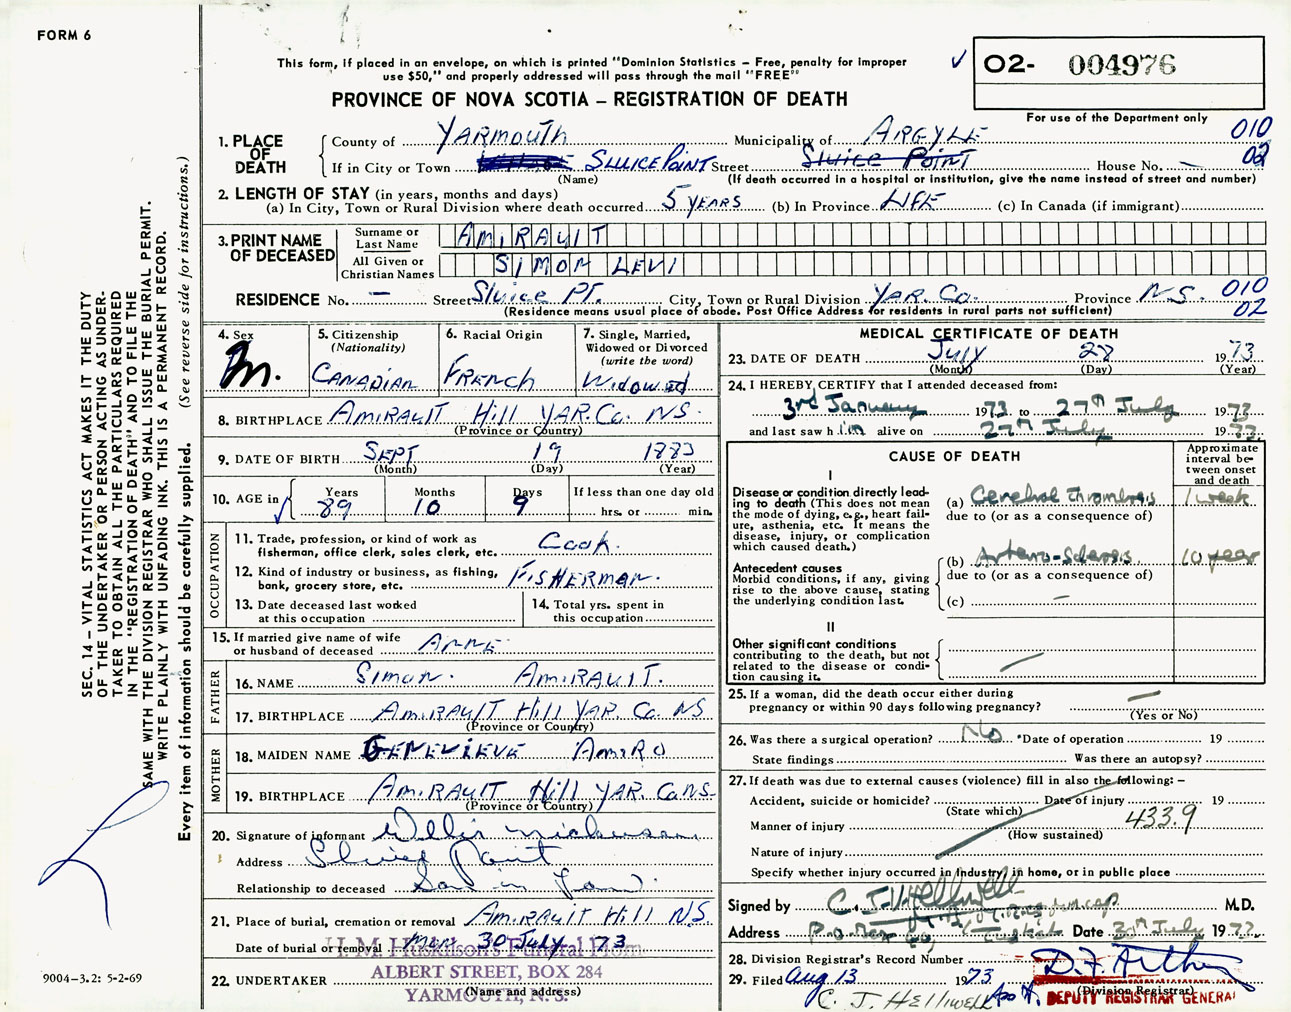 FORM 6
This form, if placed in an envelope, on which is printed "Dominion Statistics – Free, penalty for improper
use $50," and properly addressed will pass through the mail "FREE"
PROVINCE OF NOVA SCOTIA – REGISTRATION OF DEATH
✓ 02- 004976
For use of the Department only
010
02
1. PLACE OF DEATH
County of YARMOUTH Municipality of ARGYLE
If in City or Town SLUICE POINT Street Sluice POINT House No. —
(Name) (If death occurred in a hospital or institution, give the name instead of street and number)
2. LENGTH OF STAY (in years, months and days)
(a) In City, Town or Rural Division where death occurred 5 YEARS (b) In Province LIFE (c) In Canada (if immigrant)
3. PRINT NAME OF DECEASED
Surname or Last Name AMIRAULT
All Given or Christian Names SIMON LEVI
RESIDENCE No. — Street Sluice PT. City, Town or Rural Division YAR. Co. Province N.S. 010
(Residence means usual place of abode. Post Office Address for residents in rural parts not sufficient) 02
4. Sex M.
5. Citizenship (Nationality) CANADIAN
6. Racial Origin FRENCH
7. Single, Married, Widowed or Divorced (write the word) Widowed
8. BIRTHPLACE AMIRAULT Hill YAR. Co. N.S.
(Province or Country)
9. DATE OF BIRTH SEPT 19 1883
(Month) (Day) (Year)
10. AGE in ✓ Years 89 Months 10 Days 9 If less than one day old
hrs. or min.
OCCUPATION
11. Trade, profession, or kind of work as
fisherman, office clerk, sales clerk, etc. Cook.
12. Kind of industry or business, as fishing,
bank, grocery store, etc. FISHERMAN.
13. Date deceased last worked
at this occupation
14. Total yrs. spent in
this occupation
15. If married give name of wife
or husband of deceased ANNE
FATHER
16. NAME Simon. AMIRAULT.
17. BIRTHPLACE AMIRAULT Hill YAR. Co. NS
(Province or Country)
MOTHER
18. MAIDEN NAME GENEVIEVE AMIRO
19. BIRTHPLACE AMIRAULT Hill YAR. Co NS.
(Province or Country)
20. Signature of informant
Address Sluice Point
Relationship to deceased Son in Law.
21. Place of burial, cremation or removal AMIRAULT Hill N.S.
Date of burial or removal Mon 30 July 73
22. UNDERTAKER
(Name and address)
ALBERT STREET, BOX 284
YARMOUTH, N. S.
MEDICAL CERTIFICATE OF DEATH
23. DATE OF DEATH July 28 1973
(Month) (Day) (Year)
24. I HEREBY CERTIFY that I attended deceased from:
3rd January 1973 to 27th July 1973
and last saw him alive on 27th July 1973.
CAUSE OF DEATH
Approximate interval between onset and death
I
Disease or condition directly leading to death (This does not mean the mode of dying, e.g., heart failure, asthenia, etc. It means the disease, injury, or complication which caused death.)
(a) Cerebral thrombosis 1 week
due to (or as a consequence of)
Antecedent causes
Morbid conditions, if any, giving rise to the above cause, stating the underlying condition last.
(b) Arterio-Sclerosis 10 year
due to (or as a consequence of)
(c) —
II
Other significant conditions
contributing to the death, but not related to the disease or condition causing it.
25. If a woman, did the death occur either during
pregnancy or within 90 days following pregnancy? —
(Yes or No)
26. Was there a surgical operation? No Date of operation 19
State findings Was there an autopsy?
27. If death was due to external causes (violence) fill in also the following: –
Accident, suicide or homicide? Date of injury 19
(State which)
Manner of injury 433.9
(How sustained)
Nature of injury
Specify whether injury occurred in industry, in home, or in public place
Signed by C. J. Helliwell M.D.
Address Date July 1973.
28. Division Registrar's Record Number
29. Filed Aug 13 1973
(Division Registrar)
DEPUTY REGISTRAR GENERAL
C. J. HELLIWELL
SEC. 14 – VITAL STATISTICS ACT MAKES IT THE DUTY
OF THE UNDERTAKER OR PERSON ACTING AS UNDER-
TAKER TO OBTAIN ALL THE PARTICULARS REQUIRED
IN THE "REGISTRATION OF DEATH" AND TO FILE THE
SAME WITH THE DIVISION REGISTRAR WHO SHALL ISSUE THE BURIAL PERMIT.
WRITE PLAINLY WITH UNFADING INK. THIS IS A PERMANENT RECORD.
Every item of information should be carefully supplied. (See reverse side for instructions.)
9004–3.2: 5-2-69